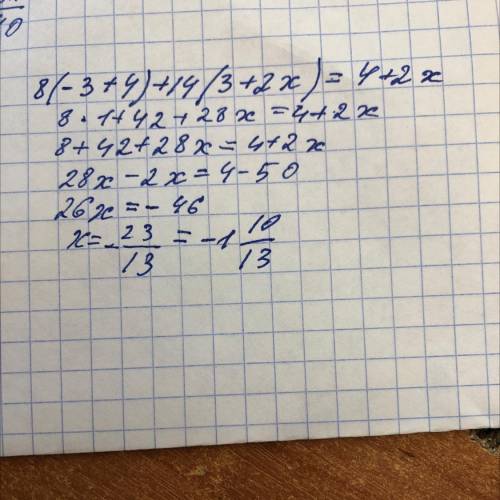 40
8(-3+4)+14(3+2x)=4+2x
8·1+42+28x=4+2x
8+42+28x=4+2x
28x-2x=4-50
26x=-46
x=-23/13=-1 10/13